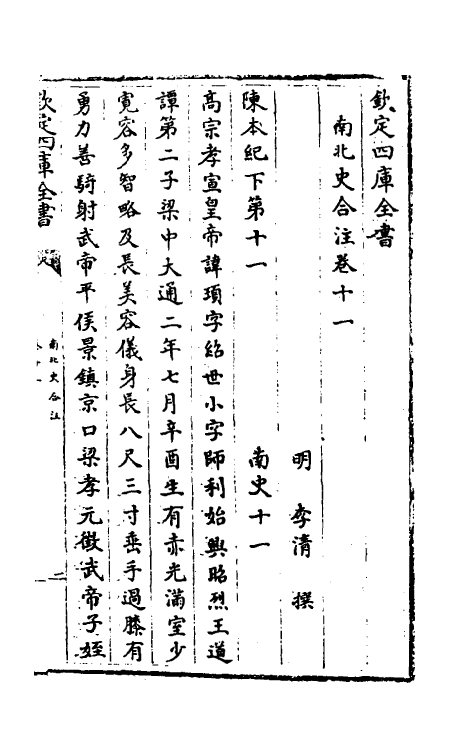 欽定四庫全書
南北史合注卷十一
明 李清 撰
陳本紀下第十一 南史十一
高宗孝宣皇帝諱頊字紹世小字師利始興昭烈王道
譚第二子梁中大通二年七月辛酉生有赤光滿室少
寛容多智略及長美容儀身長八尺三寸垂手過膝有
勇力善騎射武帝平侯景鎮京口梁孝元徵武帝子姪
欽定四庫全書
南北史合注